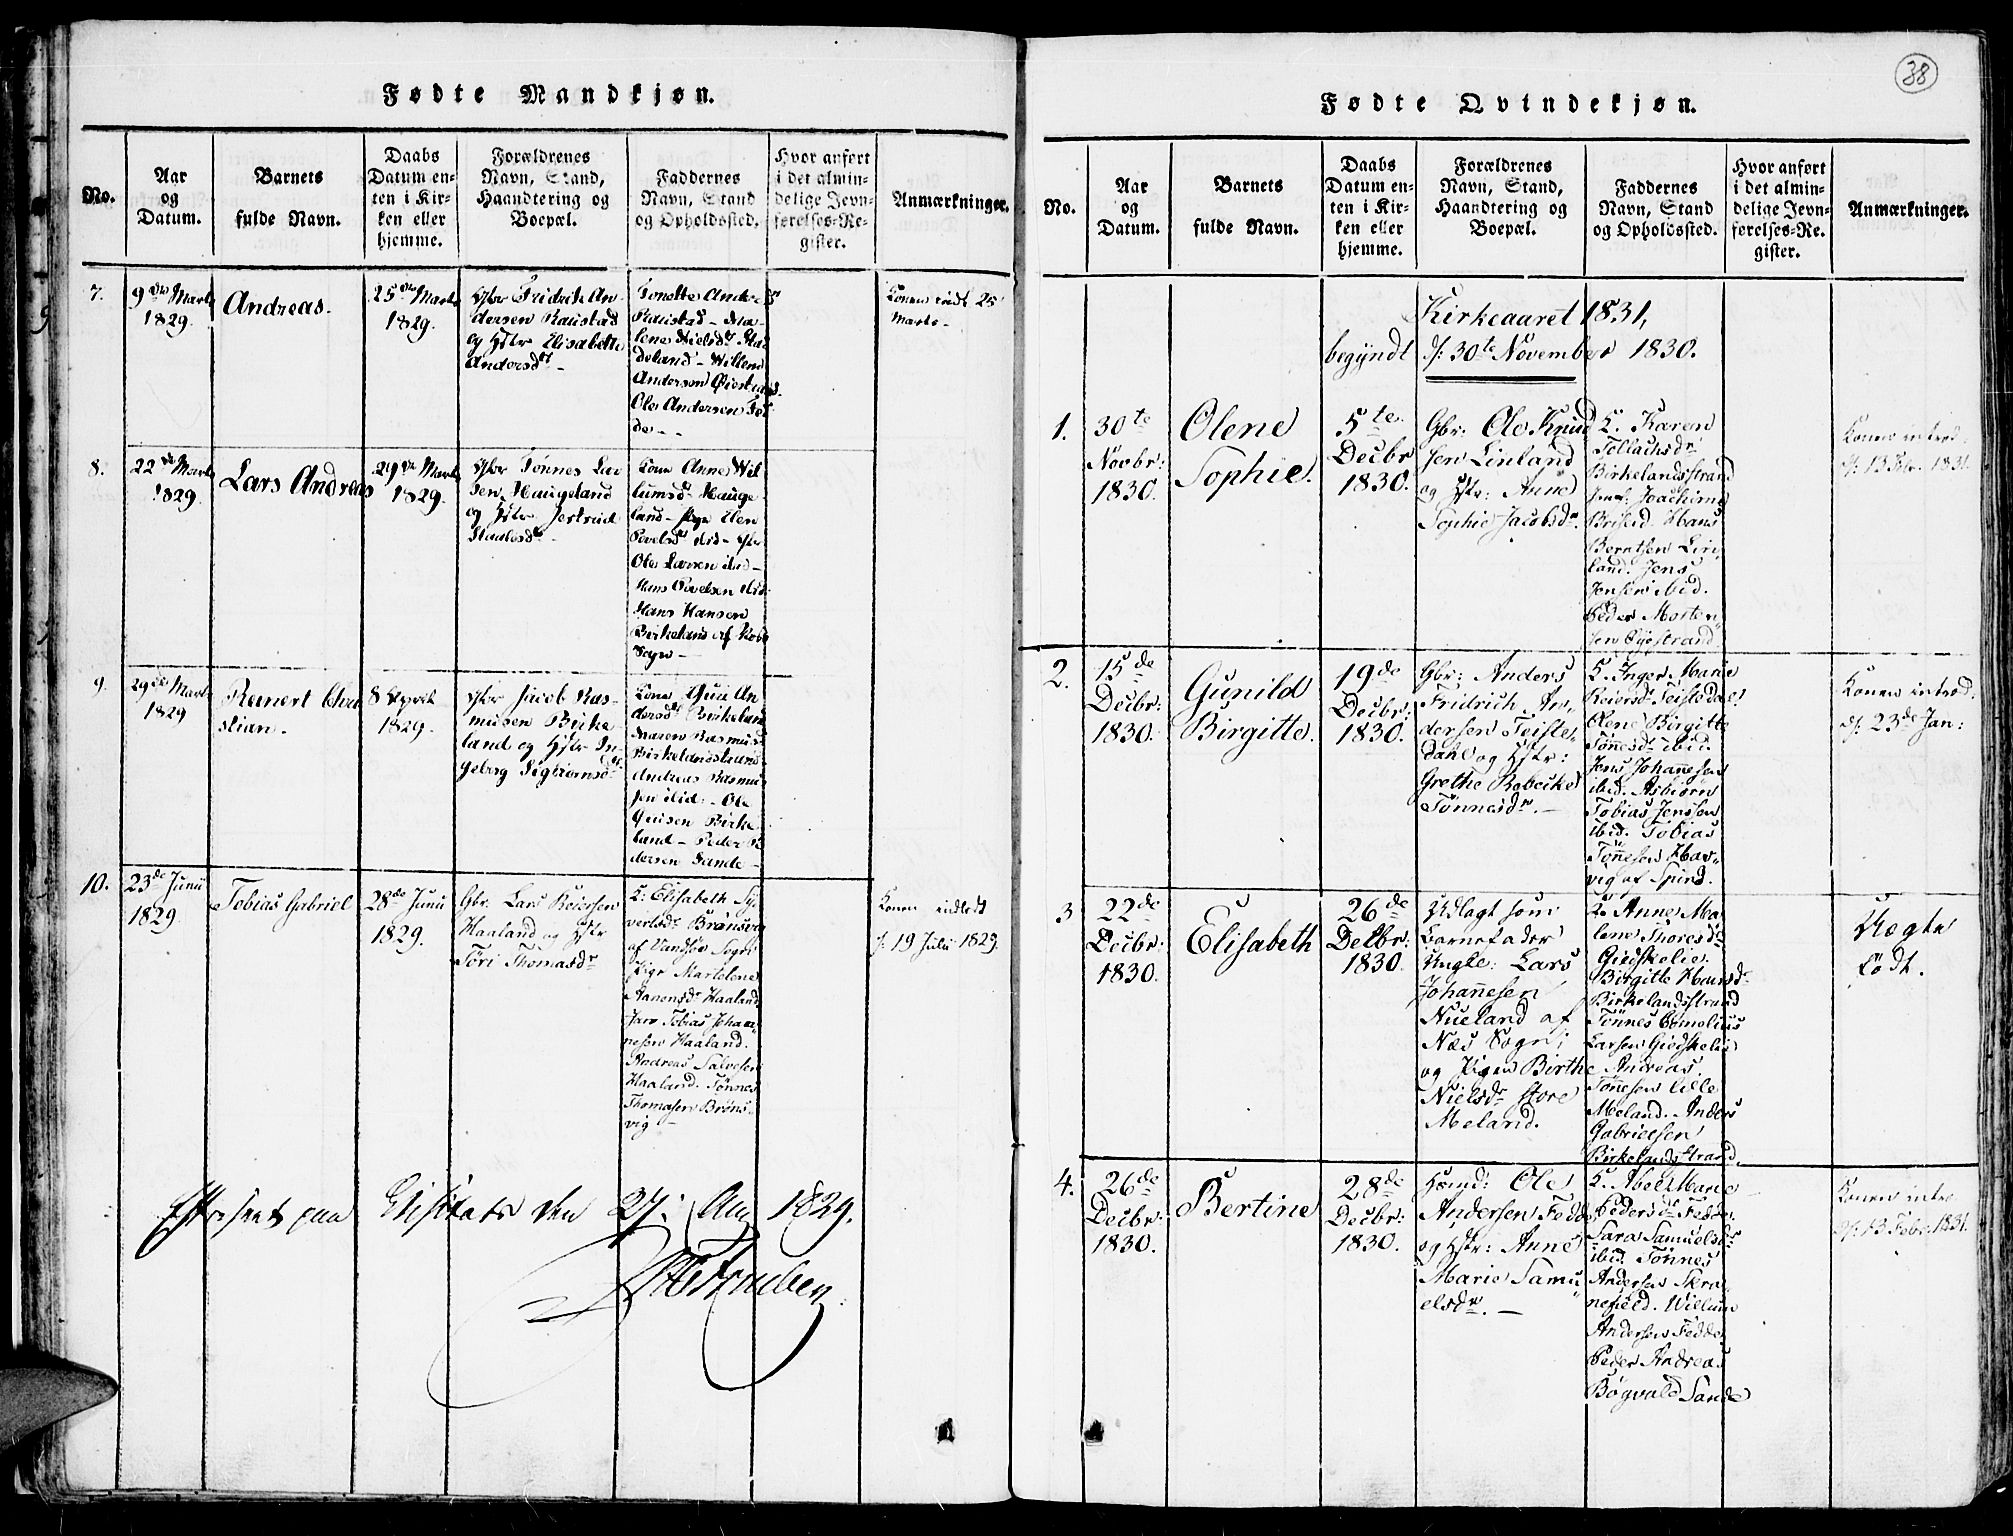 38
Fødte Mandkjøn.
No.
Aar
og
Datum.
Barnets
fulde Navn.
Daabs
Datum en-
ten i Kir-
ken eller
hjemme.
Forældrenes
Navn, Stand,
Haandtering og
Boepæl.
Faddernes
Navn, Stand
og Opholdssted.
Hvor anført
i det almin-
delige Jevn-
førelses-Re-
gister.
Anmærkninger.
7.
9de Marts
1829.
Andreas.
25de Marts
1829.
Fridrik An-
dersen Raustad
og Hstr Elisabeth
Andersdtr
Tonette Anders
Raustad - Ma-
lene Nielsdtr
Willem
Andersen
Ole Andersen
Konen indl 25
Marts.
8.
22de Marts
1829.
Lars Andreas
29de Marts
1829.
Tønnes Lar
sen Haugeland
og Hstr Jertrud
Kone Anne Wil
lumsd Hauge
land - Pige Elen
Povelsd ibid -
Ole Larsen ibid -
Hans Povelsen ibid
Hans Hansen
Birkeland af
Sogn -
9.
29de Marts
1829
Reinert Chri
stian.
8de April
1829.
Jacob Ras-
musen Birke
land og Hstr In-
geborg Sigbiørnsd
Kone
dersd Birkeland
Maren Rasmus
Birkelandstrand
Andreas Rasmu
sen ibid: - Ole
Birke
land - Peder Pe
dersen Sande -
10.
23de Junii
1829.
Tobias Gabriel
28de Junii
1829.
Gbr. Lars Reiersen
Haaland og Hstr
Töri Thomasdr
K: Elisabeth Sy
vertsdr Brønsvig
af Vandsøe Sogn
Pige Martelene
Aanensdr Haaland
Tobias Johan
nesen Haaland.
Andreas Salvesen
Haaland. Tønnes
Thomasen Brøns-
vig -
Konen indledt
d: 19 Julii 1829.
Efterseet paa Visitats den 27. Aug 1829.
Fødte Qvindekjøn.
No.
Aar
og
Datum.
Barnets
fulde Navn.
Daabs
Datum en-
ten i Kir-
ken eller
hjemme.
Forældrenes
Navn, Stand,
Haandtering og
Boepæl.
Faddernes
Navn, Stand
og Opholdssted.
Hvor anført
i det almin-
delige Jevn-
førelses-Re-
gister.
Anmærkninger.
Kirkeaaret 1831,
begyndt d: 30te November 1830.
1.
30te
Novbr:
1830.
Olene
Sophie.
5te
Decbr
1830.
Gbr: Ole Knud
sen Linland
og Hstr: Anne
Sophie Jacobsdr.
K. Karen
Tellachsdr
Birkelandsstrand
Jmf. Joachime
Briseid. Hans
Berntsen Lin
land. Jens
Jensen ibid.
Peder Morten
sen Eyestrand
Konen introd.
d: 13 Febr. 1831.
2.
15de
Decbr:
1830.
Gunild
Birgitte.
19de
Decbr:
1830.
Gbr: Anders
Fridrich An,
dersen Teiste,
dahl og Hstr:
Grethe Rebecke
Tönnesdr. -
K. Inger Marie
Reiersd Teistedal
Olene Birgitte
Tönnesdr ibid.
Jens Johannesen
ibid. Asbiørn
Tobias Jensen
ibid. Tobias
Tönnesen Har,
vig af Spind.
Konen introd.
d: 23de Jan:
3
22de
Decbr:
1830.
Elisabeth
26de
Decbr:
1830.
Udlagt som
Barnefader
Ungk: Lars
Johannesen
Nueland af
Næs Sogn;
og Pigen Birthe
Nielsdr store
Meland.
K. Anne Ma
lene Thoresdr
Giedskelie.
Birgitte Hansdr
Birkelandsstrand
Tønnes Cornelius
Larsen Giedskelie
Andreas
Tönnesen lille
Meland. Anders
Gabrielsen
Birkelandsstrand.
Uægte
født.
4.
26de
Decbr:
1830.
Bertine
28de
Decbr:
1830.
Huusmd: Ole
Andersen Fedde
og Hstr: Anne
Marie Samu
elsdr. -
K. Abel Marie
Pedersdr Fedde.
Sara Samuelsdr
ibid. Tönnes
Andersen Skra
nefield. Willum
Andersen Fedde
Peder Andreas
Bøgvald Sande
Konen intro
d: 13 Febr. 1831.